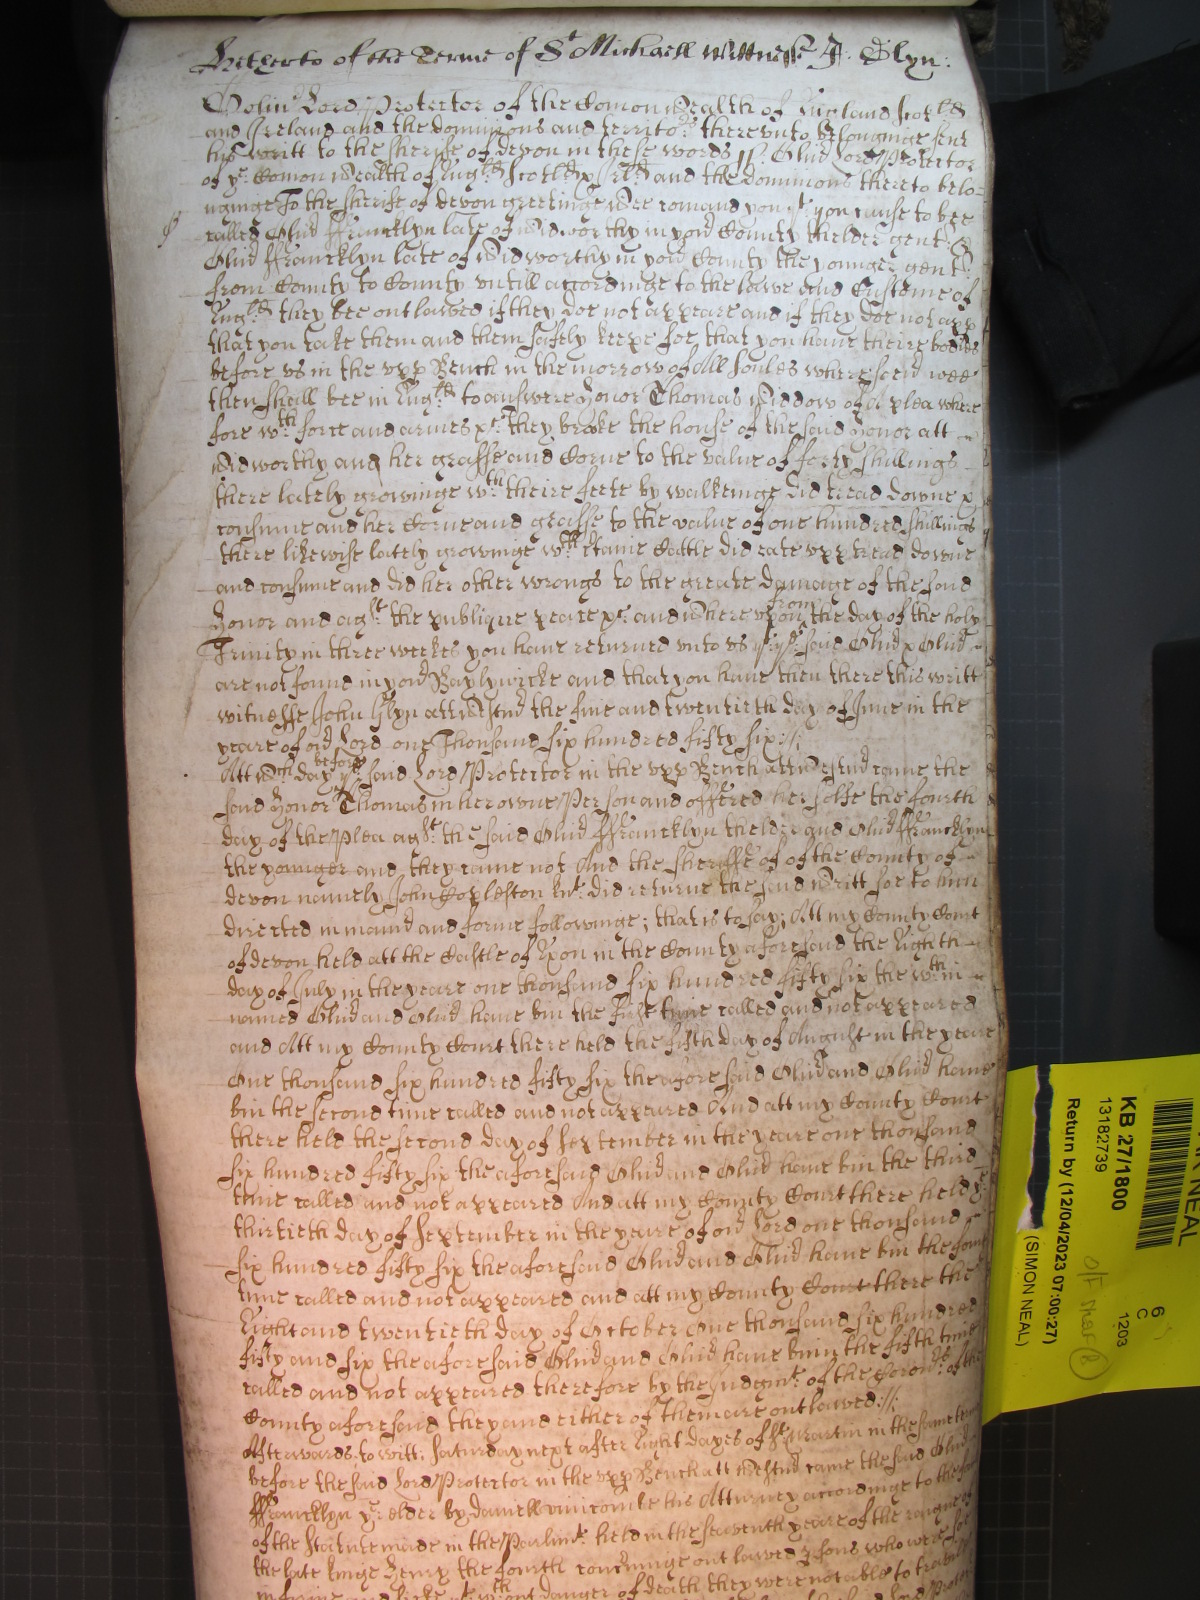 Hitherto of the Terme of St Michaell Wittnesse J. Glyn:
Olivr Lord Protector of the Comon Wealth of England Scotld
and Ireland and the dominions and territories therevnto belonginge sent
his writt to the sherife of devon in these words //. Olivr Lord Protector
of ye Comon Wealth of Engld Scotld & Irld and the dominions thereto belo=
nginge To the sherife of devon greetinge Wee comand you yt you cause to bee
called Olivr ffrancklyn late of Widworthy in yor County thelder gent. &
Olivr ffrancklyn late of Widworthy in yor County the younger gent
from County to County vntill accordinge to the lawe and Custome of
Engld they bee outlawed if they doe not appeare and if they doe not app
that you take them and them safely keepe soe that you have theire bodies
before vs in the vpp Bench in the morrow of All Soules wheresoevr wee
then shall bee in Engld to answere Honor Thomas Widdow of A plea where
fore wth force and armes &c they broke the house of the said Honor att
Widworthy and her grasse and Corne to the value of forty shillings
there lately growinge wth theire feete by walkeinge did tread downe &
consume and her Corne and grasse to the value of one hundred shillings
there likewise lately growinge wth Ctaine Cattle did eate vpp tread downe
and consume and did her other wrongs to the greate damage of the said
Honor and agst the publique peace &c and Where vpon from the day of the holy
Trinity in three weekes you have returned vnto vs yt ye said Olivr & Olivr
are not found in yor Baylywicke and that you have then there this writt
witnesse John Glyn att Westmr the five and twentieth day of June in the
yeare of our Lord one Thousand six hundred fifty six://:
Att wch day before ye said Lord Protector in the vpp Bench att Westmr came the
said Honor Thomas in her owne Person and offered her selfe the fourth
day of the Plea agst the said Olivr ffrancklyn thelder and Olivr ffrancklyn
the younger and they came not And the sheriffe of of the County of
devon namely John Copleston knt. did returne the said Writt soe to him
directed in mannr and forme followinge; that is to say; Att my County Court
of devon held att the Castle of Exon in the County aforesaid the Eighth
day of July in the yeare one thousand six hundred fifty six the wthin
named Olivr and Olivr have bin the first time called and not appeared
and Att my County Court there held the fifth day of August in the yeare
One thousand six hundred fifty six the aforesaid Olivr and Olivr have
bin the second time called and not appeared And att my County Court
there held the second day of September in the yeare one thousand
six hundred fifty six the aforesaid Olivr and Olivr have bin the third
time called and not appeared And att my County Court there held ye
thirtieth day of September in the yeare of our Lord one thousand
six hundred fifty six the aforesaid Olivr and Olivr have bin the fourth
time called and not appeared and att my County Court there the
Eight and twentieth day of October One thousand six hundred
fifty and six the aforesaid Olivr and Olivr have binn the fifth time
called and not appeared therefore by the Judgmt. of the Coronrs. of the
County aforesaid they and either of them are outlawed://:
Afterwards to witt; Saturday next after Eight dayes of St Martin in the same terme
before the said Lord Protector in the vpp Bench att Westmr came the said Olivr
ffrancklyn ye elder by daniell vinicombe his Atturney accordinge to the
of the Statute made in the Parlimt. held in the seaventh yeare of the raigne of
the late kinge Henry the fourth concerninge outlawed psons who were soe
danger of death they were not able to
KB 27/1800
13182739
Return by (12/04/2023 07:00:27)
(SIMON NEAL)
6
C
1203
NEAL